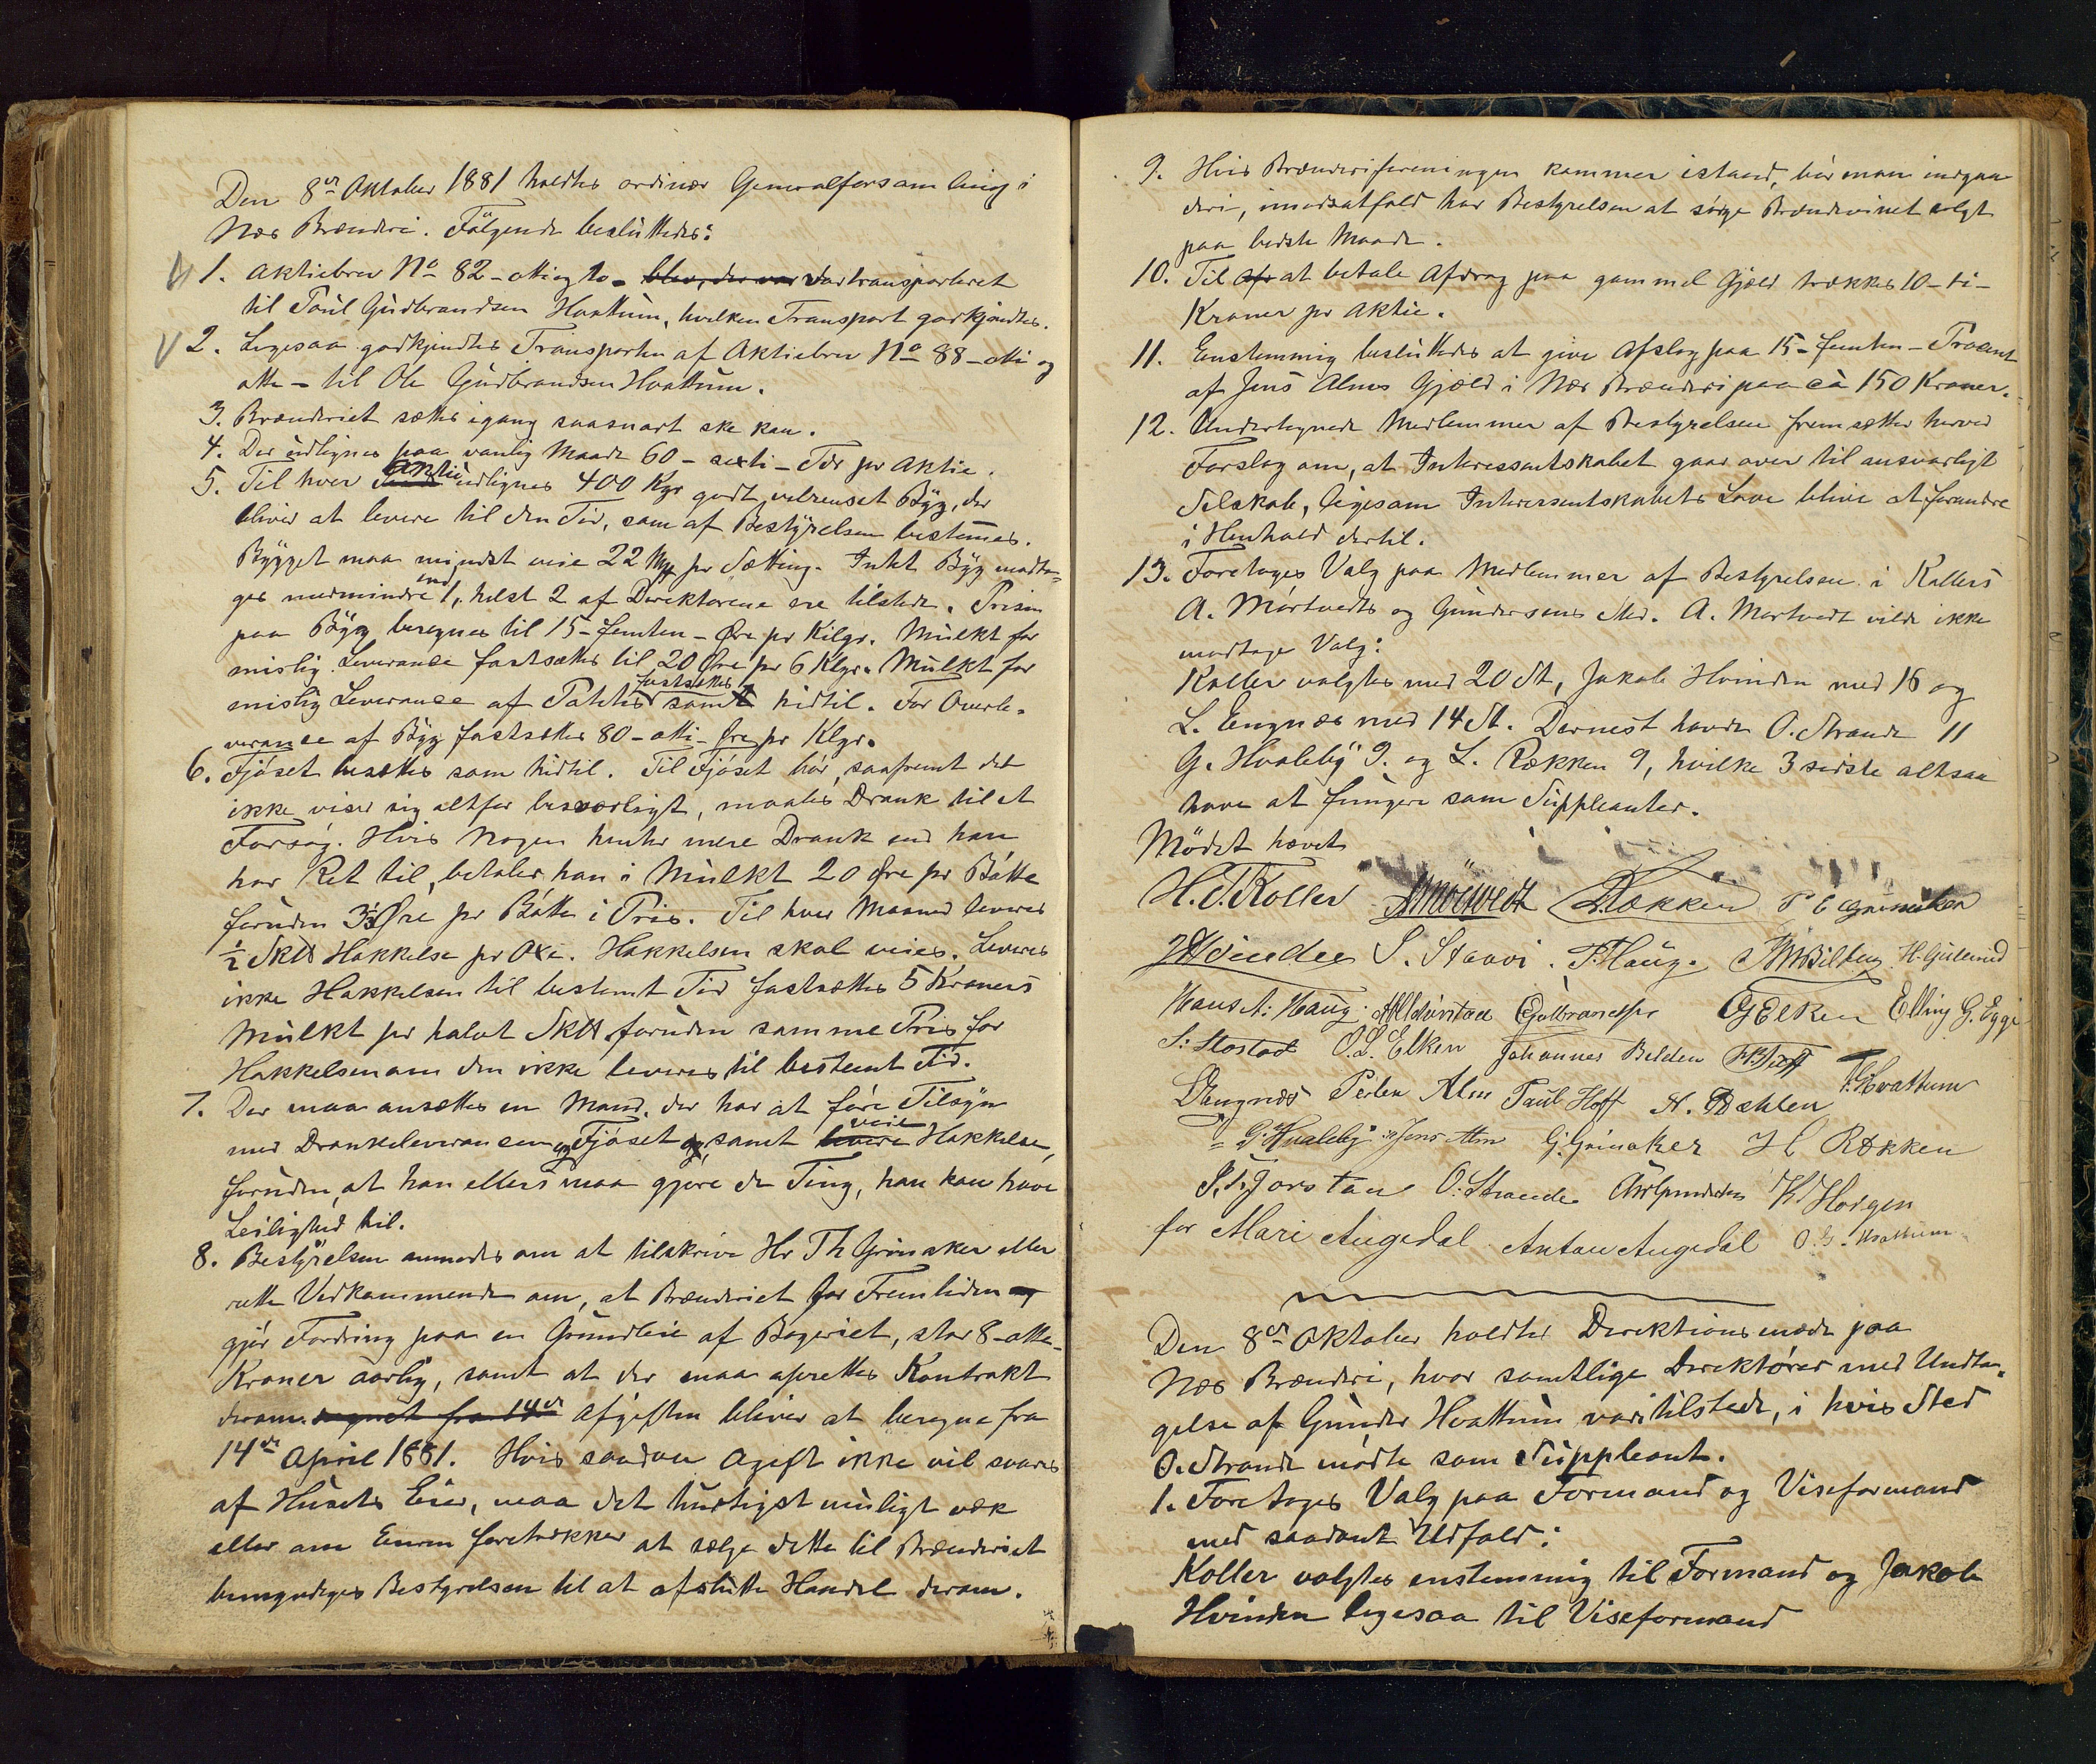 Den 8de Oktober 1881 holdtes ordinær Generalforsamling i
Næs Brænderi. Følgende besluttedes:
1. Aktiebrev No 82 - ottiogto - blev, der var var transporteret
til Poul Gudbrandsen Hvattum, hvilken Transport godkjendtes.
2. Ligesaa godkjendtes Transporten af Aktiebrev No 88 - otti og
otte - til Ole Gudbrandsen Hvattum.
3. Brænderiet sættes igang saasnart ske kan.
4. Der udlignes paa vanlig Maade 60 - sexti - Tdr pr Aktie.
5. Til hver Aktie udlignes 400 Kgr godt, velrenset Byg, der
bliver at levere til den Tid, som af Bestyrelsen bestemes.
Bygget maa mindst veie 22 pr Sætting. Intet Byg modta-
ges medmindre end 1, helst 2 af Direktørene ere tilstede. Prisen
paa Byg beregnes til 15 - femten - Øre pr Kilgr. Mulkt for
mislig Leverance fastsættes til 20 Øre pr 6 Klgr. Mulkt for
mislig Leverance af Poteter fastsættes som hidtil. For Overle-
verance af Byg fastsættes 80 - otti - Øre pr Klgr.
6. Fjøset besættes som hidtil. Til Fjøset bør, saafremt det
ikke viser sig altfor besværligt, maales Drank til et
Forsøg. Hvis Nogen henter mere Drank end han
har Ret til, betaler han i Mulkt 20 Øre pr Bøtte
foruden 3½ Øre pr Bøtte i Pris. Til hver Maaned leveres
½ Skt Hakkelse pr Oxe. Hakkelsen skal veies. Leveres
ikke Hakkelsen til bestemt Tid fastsættes 5 Kroners
Mulkt pr halvt Skt foruden samme Pris for
Hakkelsen om den ikke leveres til bestemt Tid.
7. Der maa ansættes en Mand, der har at føre Tilsyn
med Drankeleverancen og Fjøset og, samt levere veie Hakkelse,
foruden, at han ellers maa gjøre de Ting, han kan have
Leilighed til.
8. Bestyrelsen anmodes om at tilskrive Hr Th Grinaker eller
rette Vedkommende om, at Brænderiet for Fremtiden
gjør Fordring paa en Grundleie af Bageriet, stor 8 - otte -
Kroner aarlig, samt at der maa oprettes Kontrakt
derom. regnet fra 14de Afgiften bliver at beregne fra
14de April 1881. Hvis saadan Afgift ikke vil svares
af Husets Eier, maa det hurtigst muligt væk
eller om Eieren foretrækker at sælge dette til Brænderiet
bemyndiges Bestyrelsen til at afslutte Handel derom.
9. Hvis Brænderiforeningen kommer istand, bør man indgaa
deri, imodsatfald har Bestyrelsen at sørge Brændevinet solgt
paa bedste Maade.
10. Til af at betale Afdrag paa gammel Gjæld trækkes 10 - ti -
Kroner pr Aktie.
11. Enstemmig besluttedes at give Afslag paa 15 - femten - Procent
af Jens Alms Gjæld i Næs Brænderi paa ca 150 Kroner.
12. Undertegnede Medlemmer af Bestyrelsen fremsætter herved
Forslag om, at Interessentskabet gaar over til ansvarligt
Selskab, ligesom Interessentskabets Love blive at forandre
i Henhold dertil.
13. Foretoges Valg paa Medlemmer af Bestyrelsen i Kollers
A. Mørtvedts og Gundersens Sted. A. Mørtvedt vilde ikke
modtage Valg:
Koller valgtes med 20 St, Jakob Hvinden med 16 og
L. Engnæs med 14 St. Dernest havde O. Strande 11
G. Hvaleby 9. og L. Røkken 9, hvilke 3 sidste altsaa
have at fungere som Suppleanter.
Mødet hævet
H.T. Koller A Mörtvedt L Røkken P E Grinaker
J Hvinden S. Staxvi. P. Haug.
Hans A: Haug. Gulbrandsen G Elken Elling G. Egge
S: Stostad O.L. Elken Johannes Belden P. Hvattum
L Engnæs Peder Alm Paul Hoff N. Dæhlen
G: Hvaleby Jens Alm G. Grinaker H Røkken
O. Strande K Horgen
for Mari Augedal Antan Augedal O.G. Hvattum
Den 8de Oktober holdtes Direktionsmøde paa
Næs Brænderi, hvor samtlige Direktører med Undta-
gelse af Gunder Hvattum var tilstede, i hvis Sted
O. Strande mødte som Suppleant.
1. Foretoges Valg paa Formand og Viseformand
med saadant Udfald:
Koller valgtes enstemmig til Formand og Jakob
Hvinden ligesaa til Viseformand